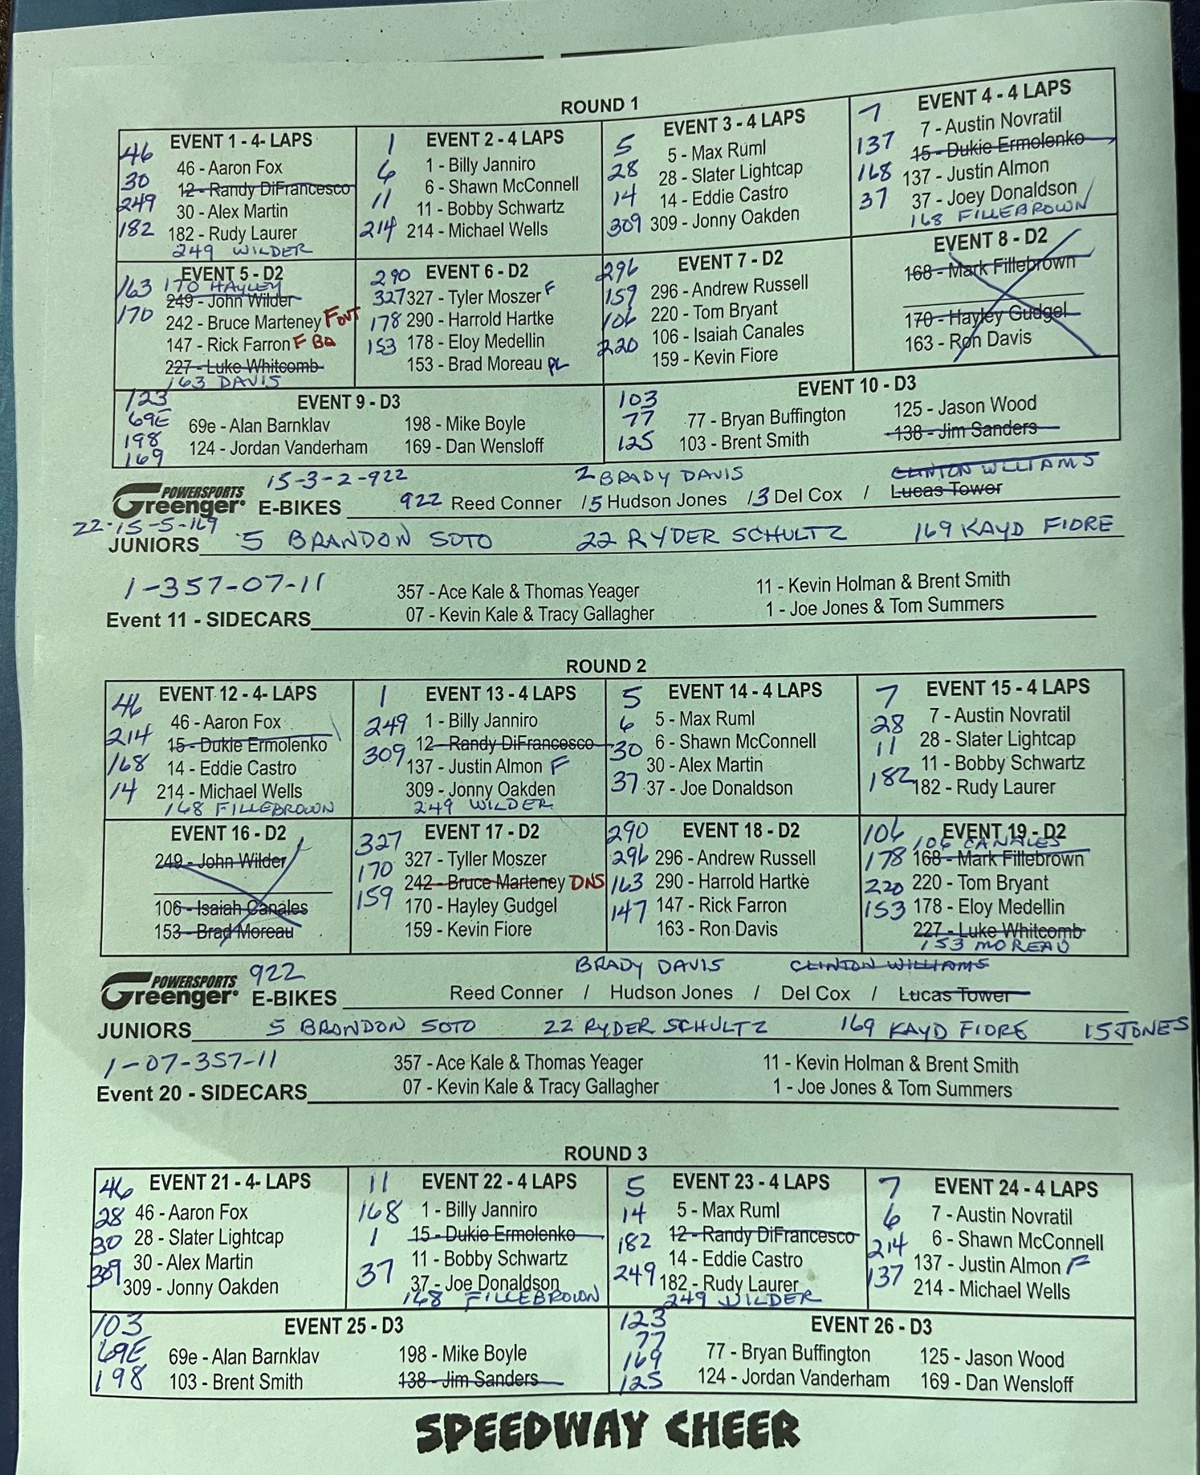 ROUND 1
EVENT 1 - 4- LAPS
46 46 - Aaron Fox
30 12 - Randy DiFrancesco
249 30 - Alex Martin
182 182 - Rudy Laurer
249 WILDER
EVENT 2 - 4 LAPS
1 1 - Billy Janniro
6 6 - Shawn McConnell
11 11 - Bobby Schwartz
214 214 - Michael Wells
EVENT 3 - 4 LAPS
5 5 - Max Ruml
28 28 - Slater Lightcap
14 14 - Eddie Castro
309 309 - Jonny Oakden
EVENT 4 - 4 LAPS
7 7 - Austin Novratil
137 15 - Dukie Ermolenko
168 137 - Justin Almon
37 37 - Joey Donaldson
168 FILLEBROWN
EVENT 5 - D2
163 170 HAYLEY
249 - John Wilder
170 242 - Bruce Marteney FOUT
147 - Rick Farron F BQ
227 - Luke Whitcomb
163 DAVIS
290 EVENT 6 - D2
327 327 - Tyler Moszer F
178 290 - Harrold Hartke
153 178 - Eloy Medellin
153 - Brad Moreau PL
EVENT 7 - D2
296 296 - Andrew Russell
159 220 - Tom Bryant
106 106 - Isaiah Canales
220 159 - Kevin Fiore
EVENT 8 - D2
168 - Mark Fillebrown
170 - Hayley Gudgel
163 - Ron Davis
123 EVENT 9 - D3
69E 69e - Alan Barnklav 198 - Mike Boyle
198 124 - Jordan Vanderham 169 - Dan Wensloff
169
103 EVENT 10 - D3
77 77 - Bryan Buffington 125 - Jason Wood
125 103 - Brent Smith 138 - Jim Sanders
15-3-2-922 2 BRADY DAVIS CLINTON WILLIAMS
POWERSPORTS
Greenger E-BIKES 922 Reed Conner / 15 Hudson Jones / 3 Del Cox / Lucas Tower
22-15-5-169
JUNIORS 5 BRANDON SOTO 22 RYDER SCHULTZ 169 KAYD FIORE
1-357-07-11 357 - Ace Kale & Thomas Yeager 11 - Kevin Holman & Brent Smith
Event 11 - SIDECARS 07 - Kevin Kale & Tracy Gallagher 1 - Joe Jones & Tom Summers
ROUND 2
EVENT 12 - 4- LAPS
46 46 - Aaron Fox
214 15 - Dukie Ermolenko
168 14 - Eddie Castro
14 214 - Michael Wells
168 FILLEBROWN
1 EVENT 13 - 4 LAPS
249 1 - Billy Janniro
309 12 - Randy DiFrancesco
137 - Justin Almon F
309 - Jonny Oakden
249 WILDER
5 EVENT 14 - 4 LAPS
6 5 - Max Ruml
30 6 - Shawn McConnell
30 - Alex Martin
37 37 - Joe Donaldson
7 EVENT 15 - 4 LAPS
28 7 - Austin Novratil
11 28 - Slater Lightcap
11 - Bobby Schwartz
182 182 - Rudy Laurer
EVENT 16 - D2
249 - John Wilder
106 - Isaiah Canales
153 - Brad Moreau
327 EVENT 17 - D2
170 327 - Tyller Moszer
242 - Bruce Marteney DNS
159 170 - Hayley Gudgel
159 - Kevin Fiore
290 EVENT 18 - D2
296 296 - Andrew Russell
163 290 - Harrold Hartke
147 147 - Rick Farron
163 - Ron Davis
106 EVENT 19 - D2
106 CANALES
178 168 - Mark Fillebrown
220 220 - Tom Bryant
153 178 - Eloy Medellin
227 - Luke Whitcomb
153 MOREAU
922 BRADY DAVIS CLINTON WILLIAMS
POWERSPORTS
Greenger E-BIKES Reed Conner / Hudson Jones / Del Cox / Lucas Tower
JUNIORS 5 BRANDON SOTO 22 RYDER SCHULTZ 169 KAYD FIORE 15 JONES
1-07-357-11 357 - Ace Kale & Thomas Yeager 11 - Kevin Holman & Brent Smith
Event 20 - SIDECARS 07 - Kevin Kale & Tracy Gallagher 1 - Joe Jones & Tom Summers
ROUND 3
46 EVENT 21 - 4- LAPS
28 46 - Aaron Fox
30 28 - Slater Lightcap
30 - Alex Martin
309 309 - Jonny Oakden
11 EVENT 22 - 4 LAPS
168 1 - Billy Janniro
1 15 - Dukie Ermolenko
11 - Bobby Schwartz
37 37 - Joe Donaldson
168 FILLEBROWN
5 EVENT 23 - 4 LAPS
14 5 - Max Ruml
182 12 - Randy DiFrancesco
14 - Eddie Castro
249 182 - Rudy Laurer
249 WILDER
7 EVENT 24 - 4 LAPS
6 7 - Austin Novratil
214 6 - Shawn McConnell
137 137 - Justin Almon F
214 - Michael Wells
103 EVENT 25 - D3
69E 69e - Alan Barnklav 198 - Mike Boyle
198 103 - Brent Smith 138 - Jim Sanders
123 EVENT 26 - D3
77 77 - Bryan Buffington 125 - Jason Wood
169 124 - Jordan Vanderham 169 - Dan Wensloff
125
SPEEDWAY CHEER